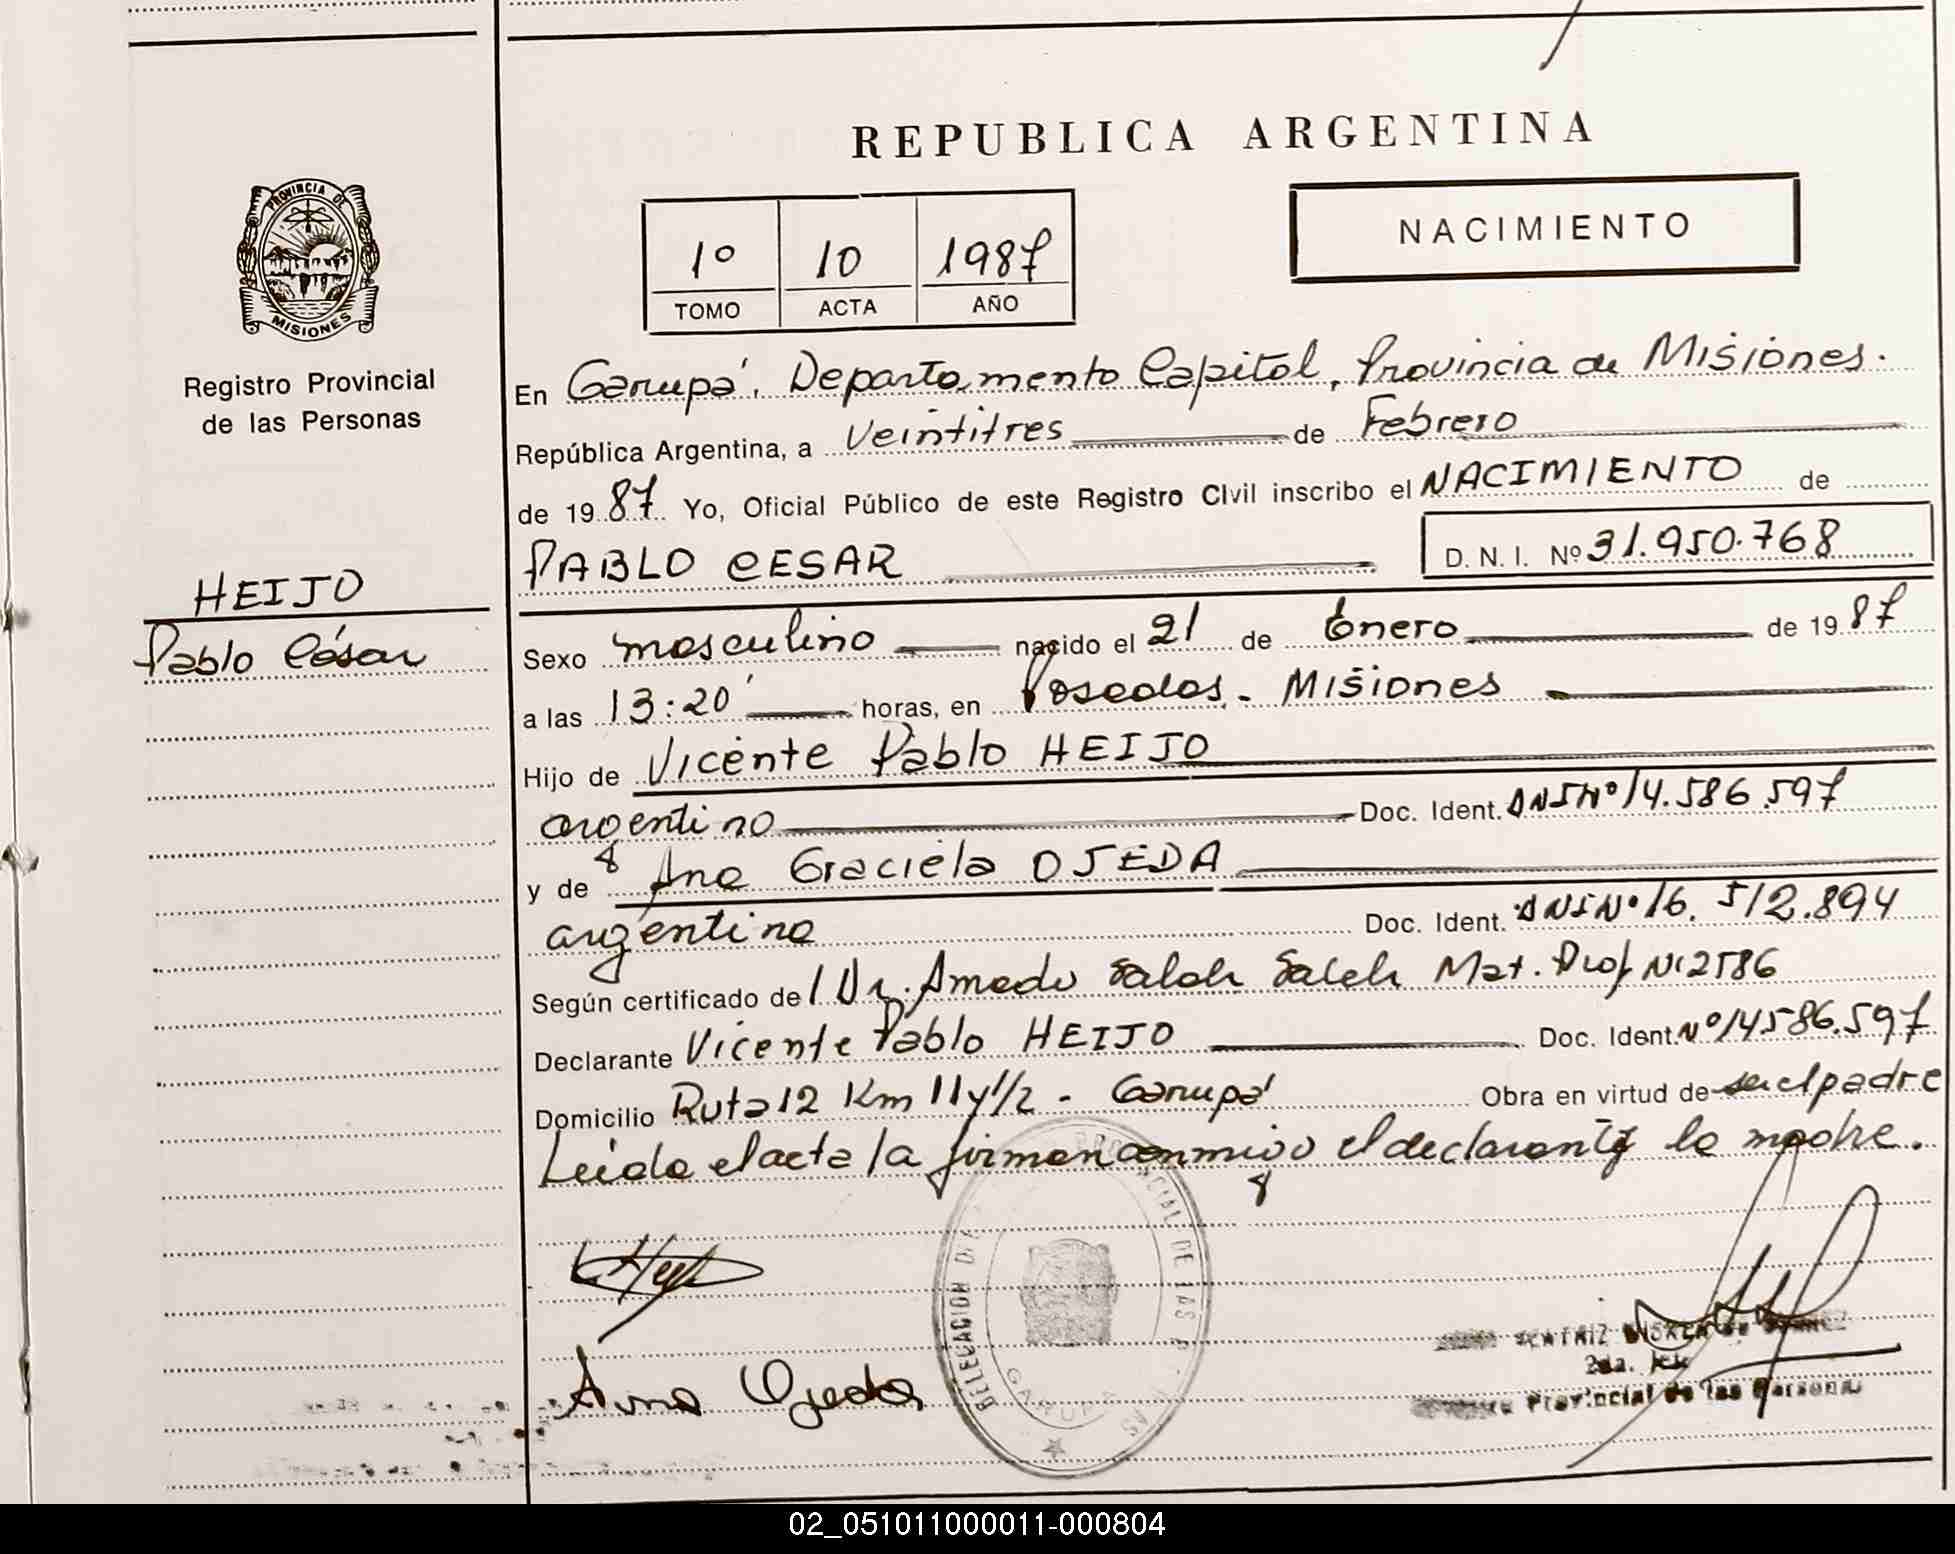 REPUBLICA ARGENTINA
PROVINCIA DE
MISIONES
Registro Provincial
de las Personas
1º 10 1987
TOMO ACTA AÑO
NACIMIENTO
En Garupá, Departamento Capital, Provincia de Misiones.
República Argentina, a Veintitres de Febrero
de 1987 Yo, Oficial Público de este Registro Civil inscribo el NACIMIENTO de
PABLO CESAR D. N. I. Nº 31.950.768
HEIJO
Pablo César
Sexo masculino nacido el 21 de Enero de 1987
a las 13:20' horas, en Posadas - Misiones
Hijo de Vicente Pablo HEIJO
argentino Doc. Ident. DNI Nº 14.586.597
y de Ana Graciela OJEDA
argentina Doc. Ident. DNI Nº 16.512.894
Según certificado del Dr. Amado Saleh Saleh Mat. Prof Nº 2586
Declarante Vicente Pablo HEIJO Doc. Ident. Nº 14586.597
Domicilio Ruta 12 Km 11 y 1/2 - Garupá Obra en virtud de ser el padre
Leída el acta la firman conmigo el declarante y la madre.
Ana Ojeda
DELEGACION
PROVINCIAL DE LAS
GARUPA
BEATRIZ
2da. Jefe
Provincial de las Personas
02_051011000011-000804